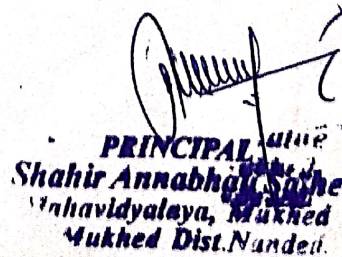 PRINCIPAL
Shahir Annabhau Sathe
Mahavidyalaya, Mukhed
Mukhed Dist.Nanded.